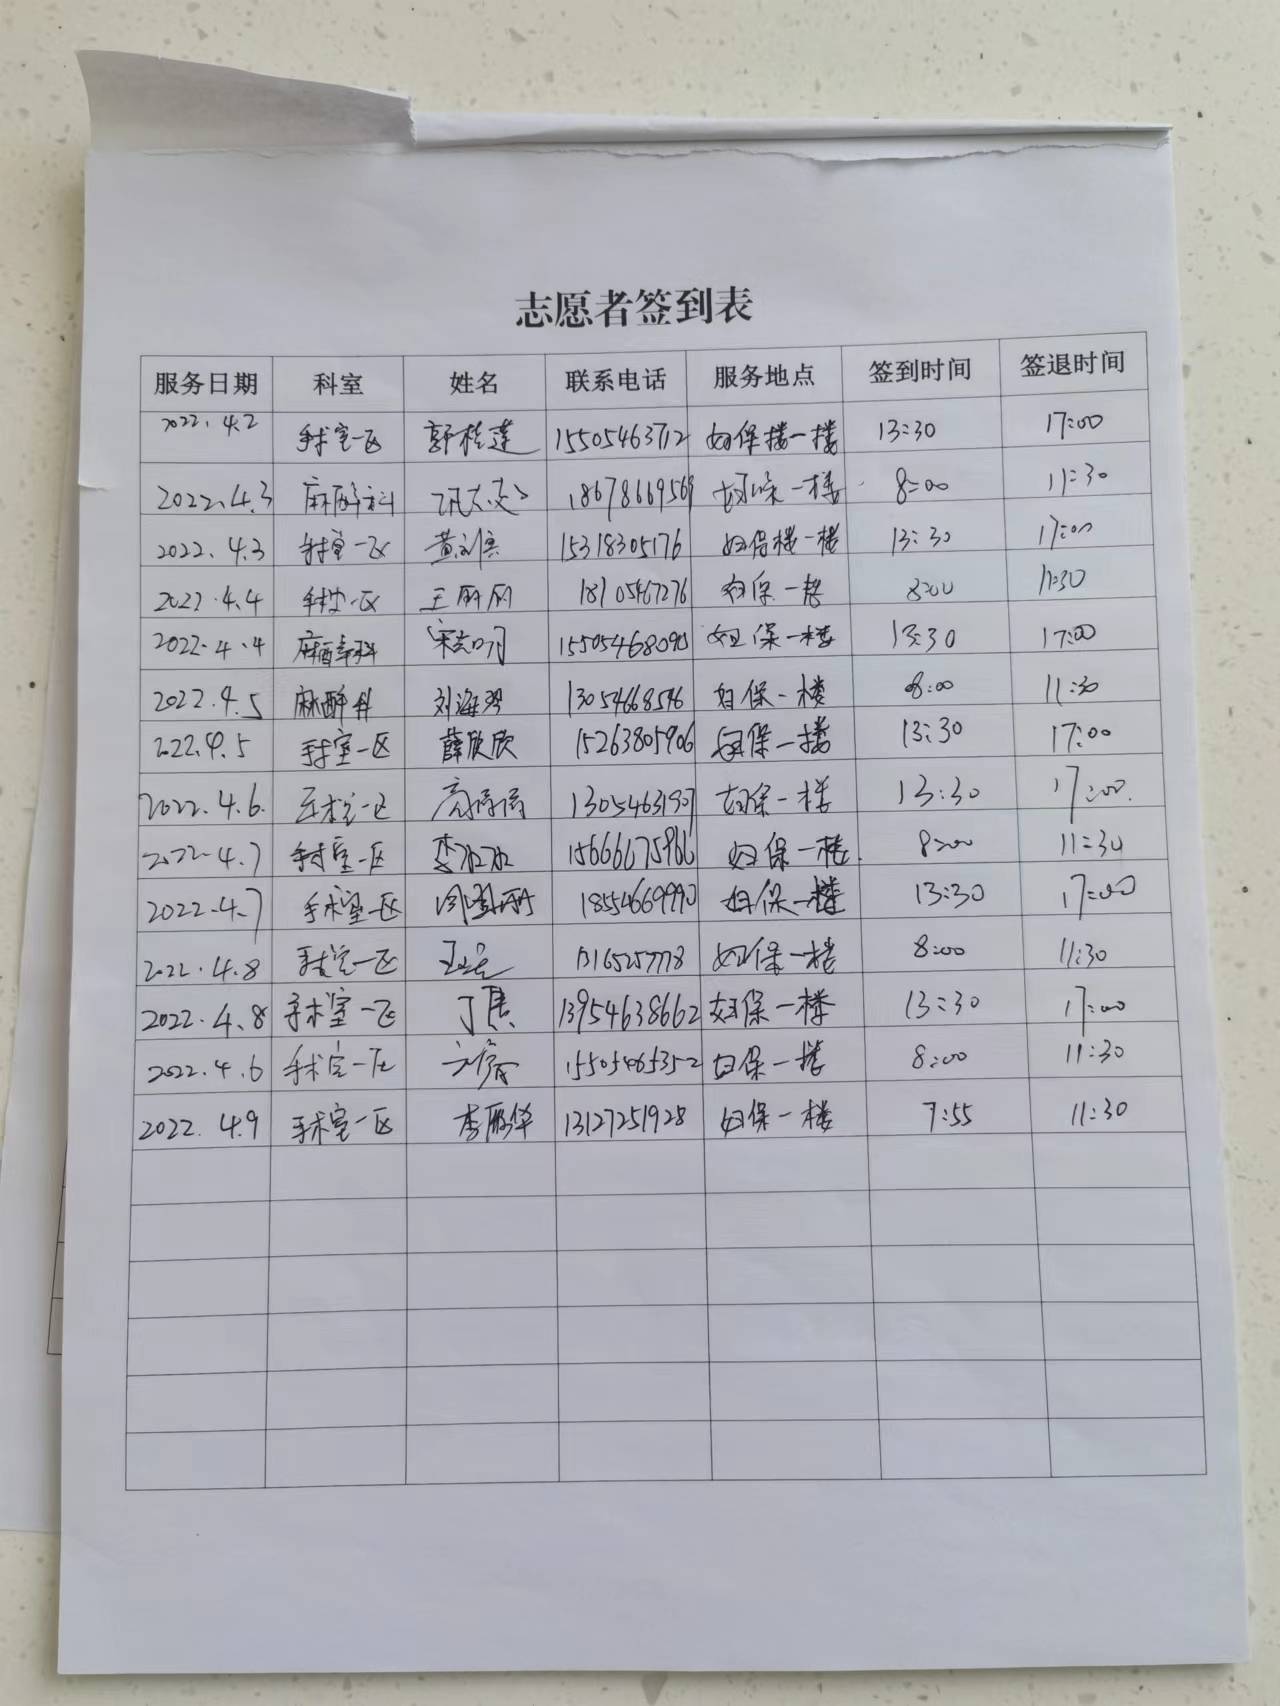 志愿者签到表
服务日期 科室 姓名 联系电话 服务地点 签到时间 签退时间
2022.4.2 手术室一区 郭桂莲 15505463712 妇保楼一楼 13:30 17:00
2022.4.3 麻醉科 18678669569 妇保一楼 8:00 11:30
2022.4.3 手术室一区 15318305176 妇保楼一楼 13:30 17:00
2022.4.4 手术室一区 王丽丽 18105467276 妇保一楼 8:00 11:30
2022.4.4 麻醉科 宋志明 15505468090 妇保一楼 13:30 17:00
2022.4.5 麻醉科 刘海 13054668596 妇保一楼 8:00 11:30
2022.4.5 手术室一区 薛欣欣 15263805906 妇保一楼 13:30 17:00
2022.4.6. 手术室一区 高倩倩 13054631907 妇保一楼 13:30 17:00.
2022.4.7 手术室一区 李冰冰 15666675966 妇保一楼. 8:00 11:30
2022.4.7 手术室一区 18554669990 妇保一楼 13:30 17:00
2022.4.8 手术室一区 妇保一楼 8:00 11:30
2022.4.8 手术室一区 丁 13954638662 妇保一楼 13:30 17:00
2022.4.6 手术室一区 15505465352 妇保一楼 8:00 11:30
2022.4.9 手术室一区 李丽华 13127251928 妇保一楼 7:55 11:30